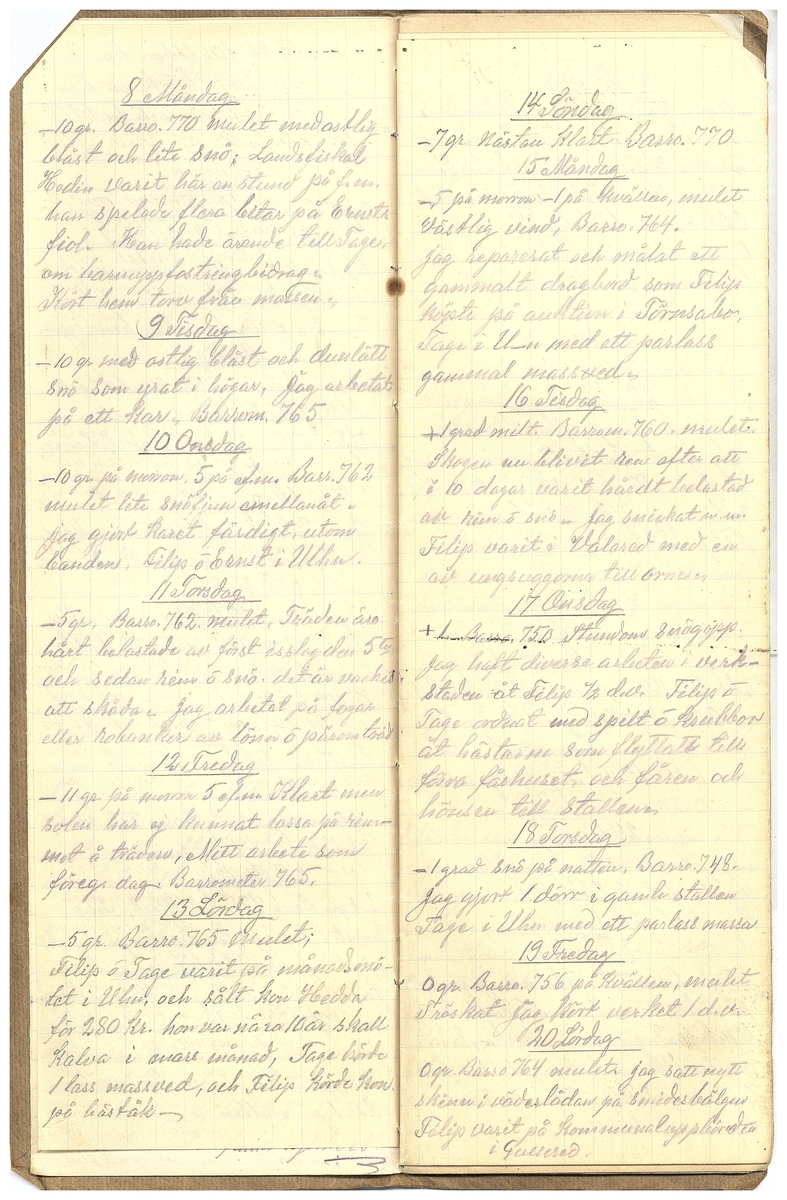 8 Måndag
-10 gr. Barro. 770 mulet med ostlig
blåst och lite snö; Landsfiskal
Hedin varit här en stund på f.m.
han spelade flera bitar på Ernsts
fiol. Han hade ärende till Tage
om barnuppfostringbidrag.
Kört hem torv från mossen.
9 Tisdag
-10 gr med ostlig blåst och dunlätt
snö som yrat i högar. Jag arbetat
på ett kar. Barrom. 765
10 Onsdag
-10 gr. på morron. 5 på ef.m. Barr. 762
mulet lite snöfjun emellanåt.
Jag gjort karet färdigt, utom
banden. Filip ö Ernst i Ulhn.
11 Torsdag
-5 gr. Barro. 762. mulet. Träden äro
hårt belastade av först isslag den
och sedan rim ö snö. det är vackert
att skåda. Jag arbetat på
eller av lönn ö päronträd
12 Fredag
-11 gr. på morron 5 ef.m. Klart men
solen har ej kunnat lossa på rim-
met å träden, Mitt arbete som
föreg. dag. Barrometer 765.
13 Lördag
-5 gr. Barro. 765 Mulet;
Filip ö Tage varit på månadsmö-
tet i Ulhn. och sålt kon Hedda
för 280 Kr. hon var nära 10 år skall
kalva i mars månad, Tage körde
1 lass massved, och Filip körde kon
på häståk
14 Söndag
-7 gr Nästan Klart Barro. 770
15 Måndag
-5 på morron -1 på kvällen, mulet
Västlig vind, Barro. 764.
Jag reparerat och målat ett
gammalt dragbord som Filip
köpte på auktion i Törnsabo.
Tage i U-n med ett parlass
gammal massved.
16 Tisdag
+1 grad milt. Barrom. 760. mulet.
Skogen nu blivit ren efter att
i 10 dagar varit hårdt belastad
av rim ö snö. Jag snickat m.m.
Filip varit i Valarad med en
av ungsuggorna till orne
17 Onsdag
+1. Barro. 750 Stundom Snögopp.
Jag haft diverse arbeten i verk-
staden åt Filip 1/2 d.v. Filip ö
Tage ordnat med spilt ö krubbor
åt hästarne som flyttats till
förra fårhuset, och fåren och
hönsen till stallen
18 Torsdag
-1 grad snö på natten. Barro. 748.
Jag gjort 1 dörr i gamla stallen
Tage i Ulhn med ett parlass massa
19 Fredag
0 gr. Barro. 756 på kvällen, mulet
Tröskat. Jag kört verket 1 d.v.
20 Lördag
0 gr. Barro 764 mulet. jag satt nytt
skinn i väderlådan på smidesbälgen
Filip varit på kommunaluppbörden
i